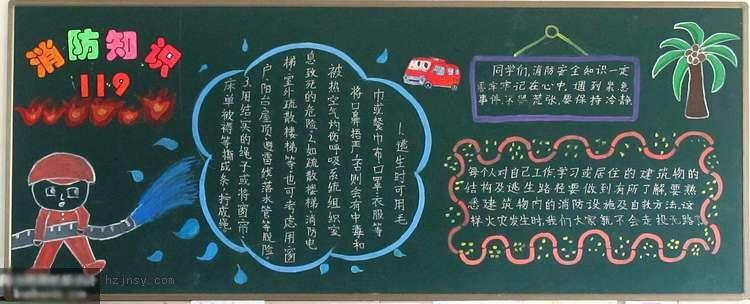 消防知识
119
1.逃生时可用毛
巾或餐巾布口罩、衣服等
将口鼻捂严,否则会有中毒和
被热空气灼伤呼吸系统组织窒
息致死的危险。2.如疏散楼梯、消防电
梯、室外疏散楼梯等也可考虑用窗
户、阳台、屋顶、避雷线、落水管等脱险
3.用结实的绳子或将窗帘、
床单被褥等撕成条,拧成绳。
同学们,消防安全知识一定
要牢牢记在心中,遇到紧急
事件,不要慌张,要保持冷静
每个人对自己工作学习或居住的建筑物的
结构及逃生路径要做到有所了解,要熟
悉建筑物内的消防设施及自救方法.这
样火灾发生时,我们大家就不会走投无路了!
hzjnsy.com